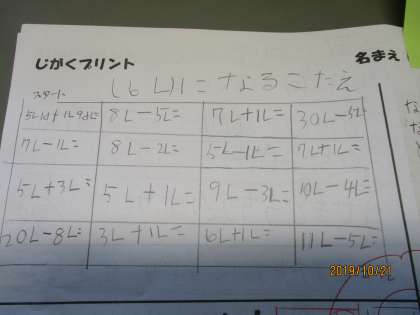 じがくプリント
名まえ
スタート
(6L)になるこたえ
8L-5L= 7L+1L= 30L-5L
7L-1L= 8L-2L= 5L-1L= 7L+1L=
5L+3L= 5L+1L= 9L-3L= 10L-4L=
20L-8L= 3L+1L= 6L+1L= 11L-5L=
2019/10/21